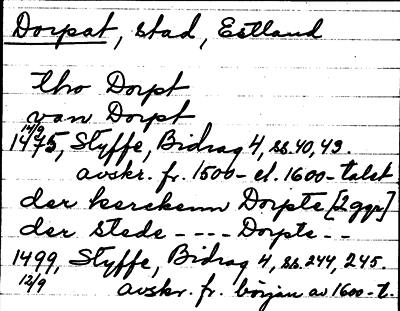 Dorpat, stad, Estland
tho Dorpt
van Dorpt
14/9
1475, Styffe, Bidrag 4, ss. 40, 43.
avskr. fr. 1500- el. 1600-talet
der kerckenn Dorpte [2 ggr]
der stede - - - - Dorpte - -
1499, Styffe, Bidrag 4, ss. 244, 245.
12/9 avskr. fr. början av 1600-t.